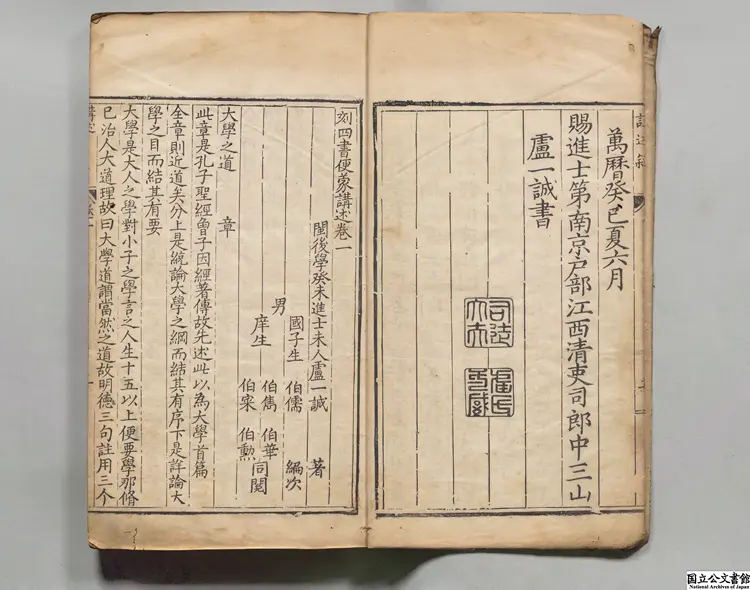 萬曆癸巳夏六月
賜進士第南京戶部江西清吏司郎中三山
盧一誠書
刻四書便蒙講述卷一
閩後學癸未進士未人盧一誠 著
男 國子生 伯儒 編次
庠生 伯雋 伯華 同閱
伯宷 伯勲
大學之道 章
此章是孔子聖經曾子因經著傳故先述此以為大學首篇
全章則近道矣分上是統論大學之綱而結其有序下是詳論大
學之目而結其有要
大學是大人之學對小子之學言之人生十五以上便要學那脩
已治人大道理故曰大學道謂當然之道故明德三句註用三个
講述
国立公文書館
National Archives of Japan